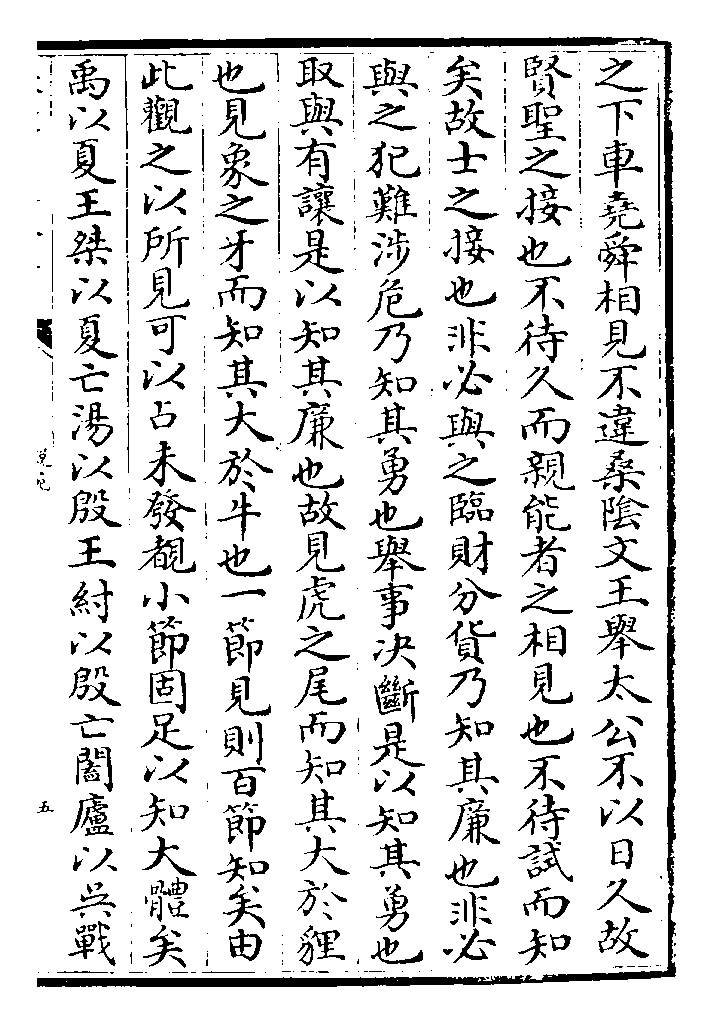 之下車堯舜相見不違桑陰文王舉太公不以日久故
賢聖之接也不待久而親能者之相見也不待試而知
矣故士之接也非必與之臨財分貨乃知其廉也非必
與之犯難涉危乃知其勇也舉事決斷是以知其勇也
取與有讓是以知其廉也故見虎之尾而知其大於貍
也見象之牙而知其大於牛也一節見則百節知矣由
此觀之以所見可以占未發覩小節固足以知大體矣
禹以夏王桀以夏亡湯以殷王紂以殷亡闔廬以吳戰
說苑
五